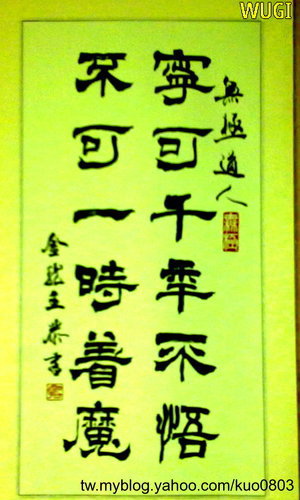 WUGI
無極道人
寧可千年不悟
不可一時着魔
金龍主恭書
tw.myblog.yahoo.com/kuo0803